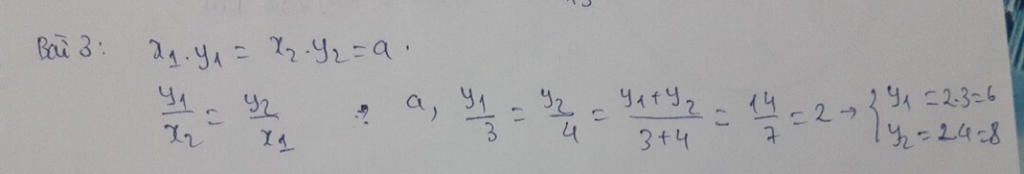 Bài 3: x₁.y₁ = x₂.y₂ = a.
y₁/x₂ = y₂/x₁ ? a, y₁/3 = y₂/4 = (y₁+y₂)/(3+4) = 14/7 = 2 → { y₁ = 2.3=6
y₂ = 2.4=8